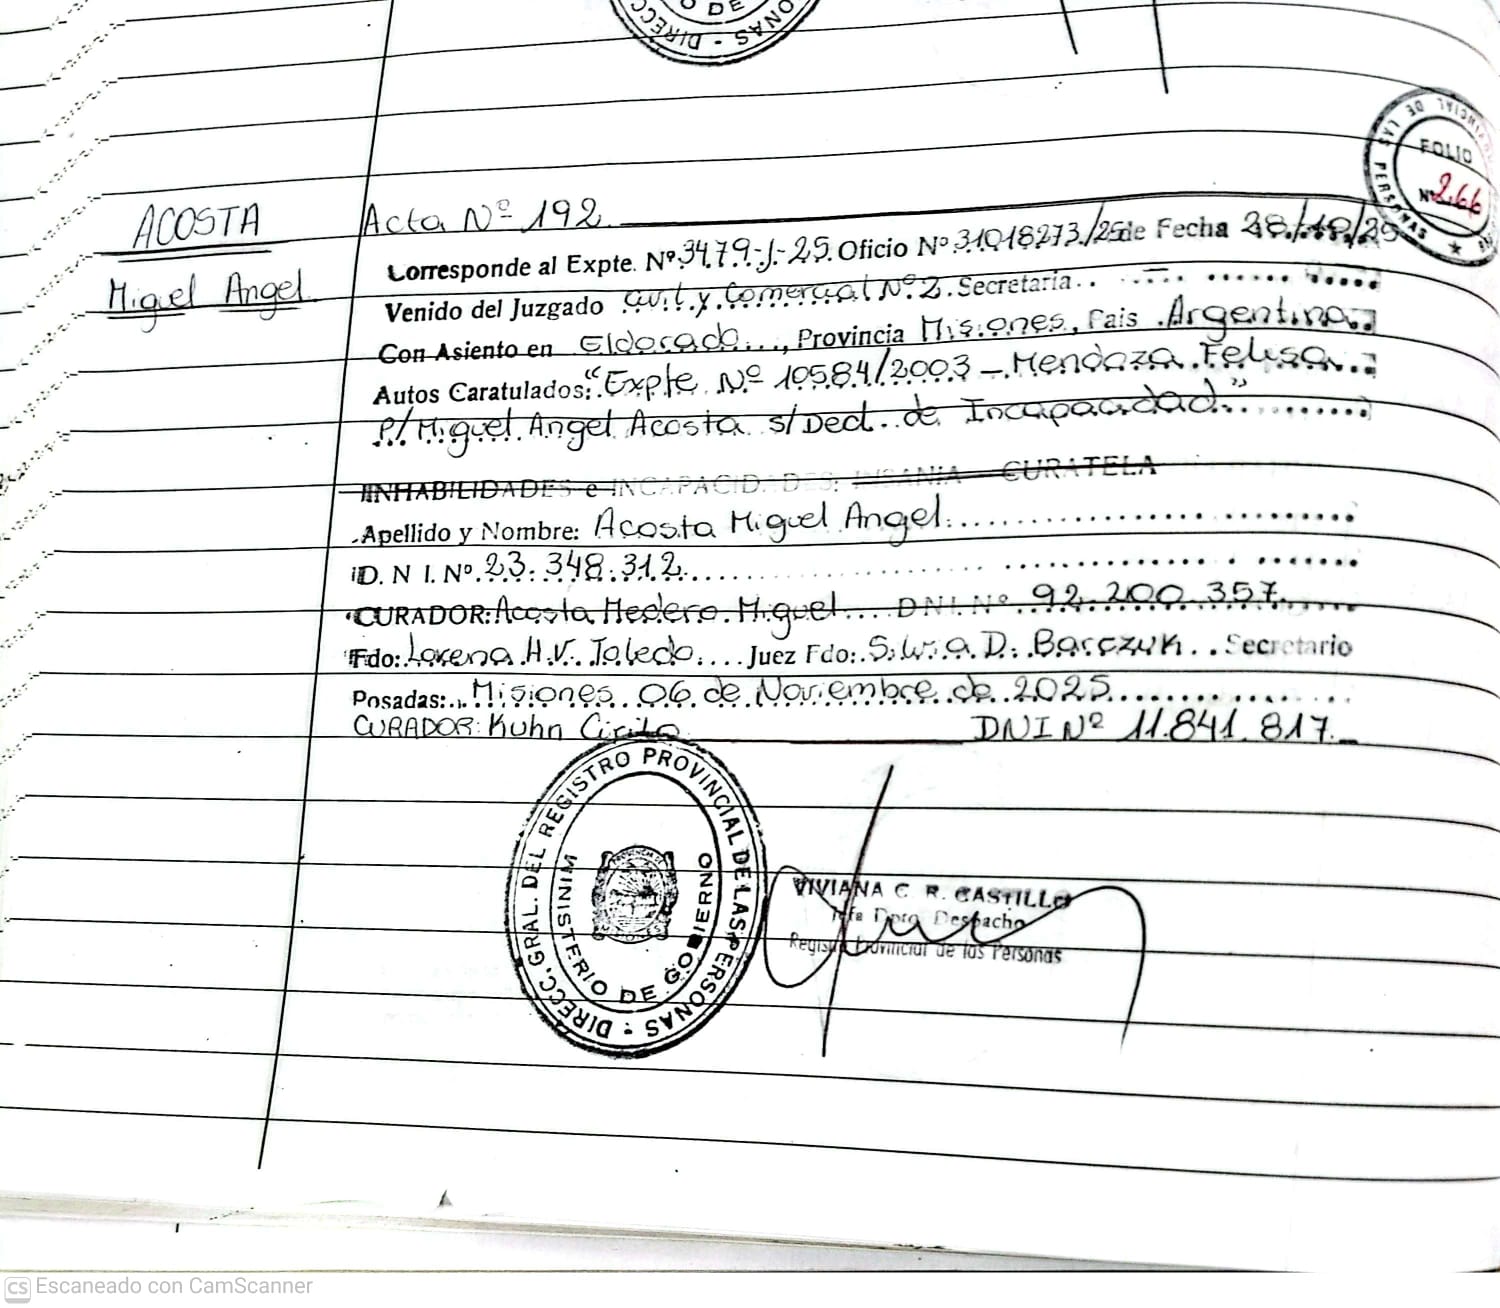 O DE
DIRECC
NAS
FOLIO
Nº 266
ACOSTA
Miguel Angel
Acta Nº 192
Corresponde al Expte. Nº 3479-J-25 Oficio Nº 31018273/25 de Fecha 28/10/25
Venido del Juzgado Civil y Comercial Nº 2 Secretaria
Con Asiento en Eldorado..., Provincia Misiones, Pais Argentina
Autos Caratulados: "Expte Nº 10584/2003 - Mendoza Felisa
P/ Miguel Angel Acosta s/ Decl. de Incapacidad"
INHABILIDADES e INCAPACIDADES: INSANIA - CURATELA
Apellido y Nombre: Acosta Miguel Angel
D. N I. Nº 23.348.312
CURADOR: Acosta Medero Miguel DNI. Nº 92.200.357
Fdo: Lorena H.V. Toledo... Juez Fdo: Silvia D. Barczuk Secretario
Posadas: Misiones 06 de Noviembre de 2025
CURADOR: Kuhn Cirilo DNI Nº 11.841.817
DIRECC. GRAL. DEL REGISTRO PROVINCIAL DE LAS PERSONAS
MINISTERIO DE GOBIERNO
VIVIANA C. R. CASTILLO
Jefa Dpto Despacho
Registro Provincial de las Personas
CS Escaneado con CamScanner